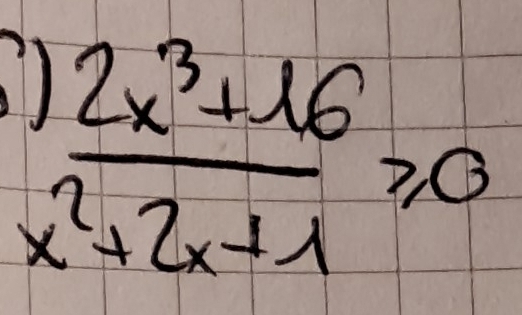 2x³+16
x²+2x+1 ≥0